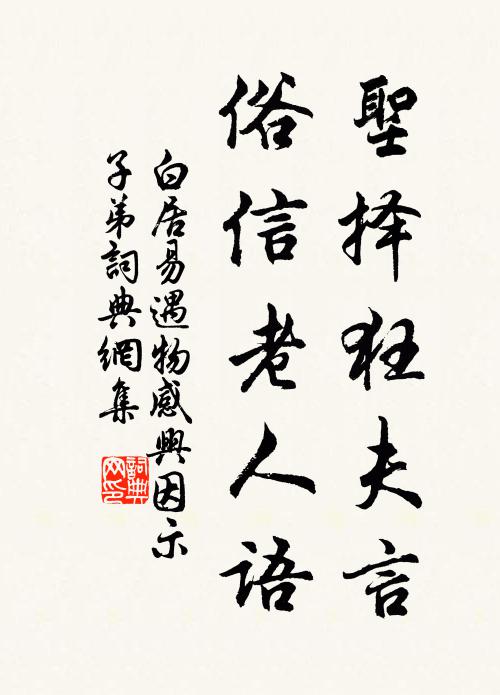 聖择狂夫言
俗信老人語
白居易遇物感興因示
子弟詞典網集
詞典
网印